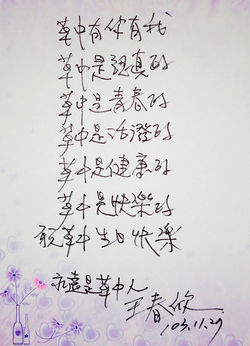 華中有你有我
華中是認真的
華中是青春的
華中是活潑的
華中是健康的
華中是快樂的
祝華中生日快樂
永遠是華中人
王春欣
103.11.29